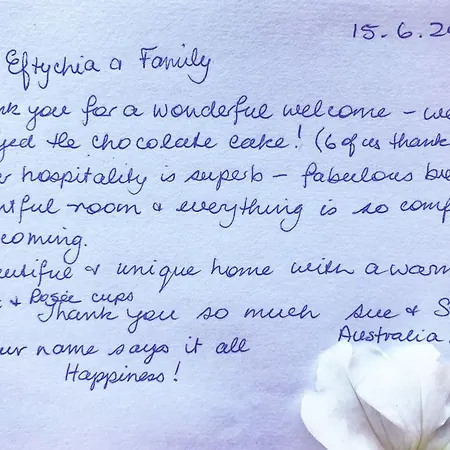 15.6.20
Eftychia & Family
nk you for a wonderful welcome – we
yed the chocolate cake! (6 of us thank
r hospitality is superb – fabulous bre
ntful room & everything is so comf
coming.
eautiful & unique home with a warm
& cups
Thank you so much Sue & S
Australia.
ur name says it all
Happiness!